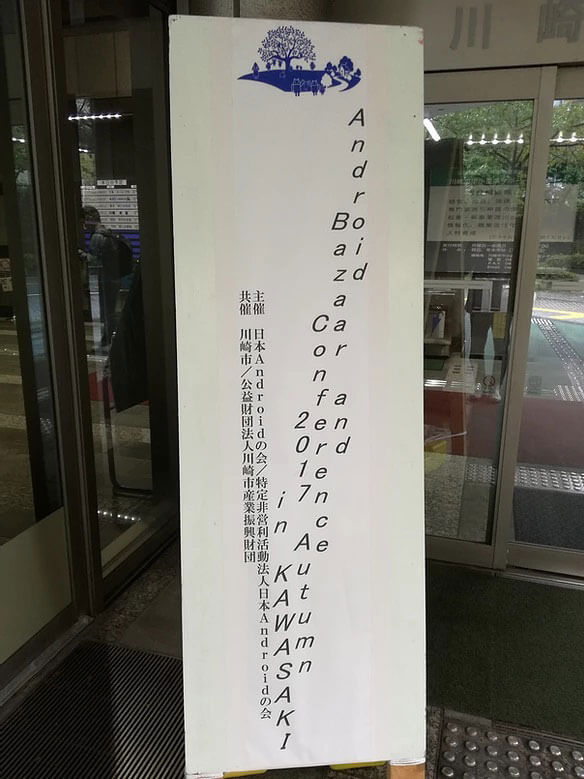 Android
Bazaar and
Conference
2017 Autumn
in KAWASAKI
主催 日本Androidの会/特定非営利活動法人日本Androidの会
共催 川崎市/公益財団法人川崎市産業振興財団
川崎